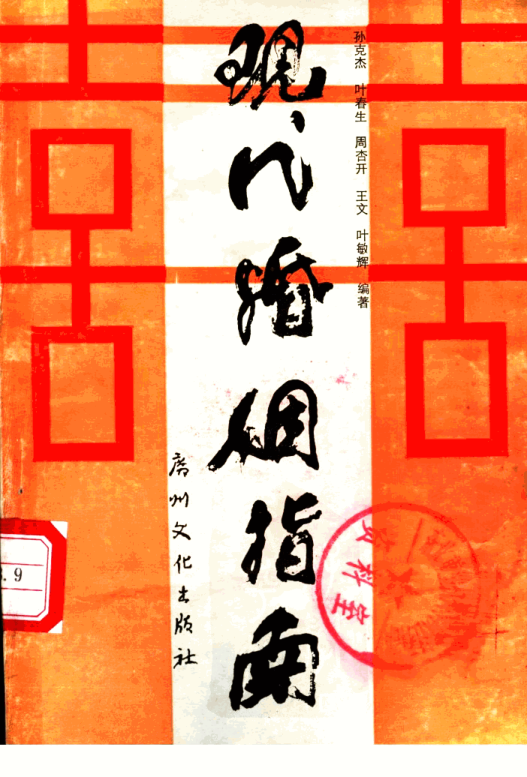 孙克杰 叶春生 周杏开 王文 叶敏辉 编著
现代婚姻指南
广州文化出版社
资料室
.9